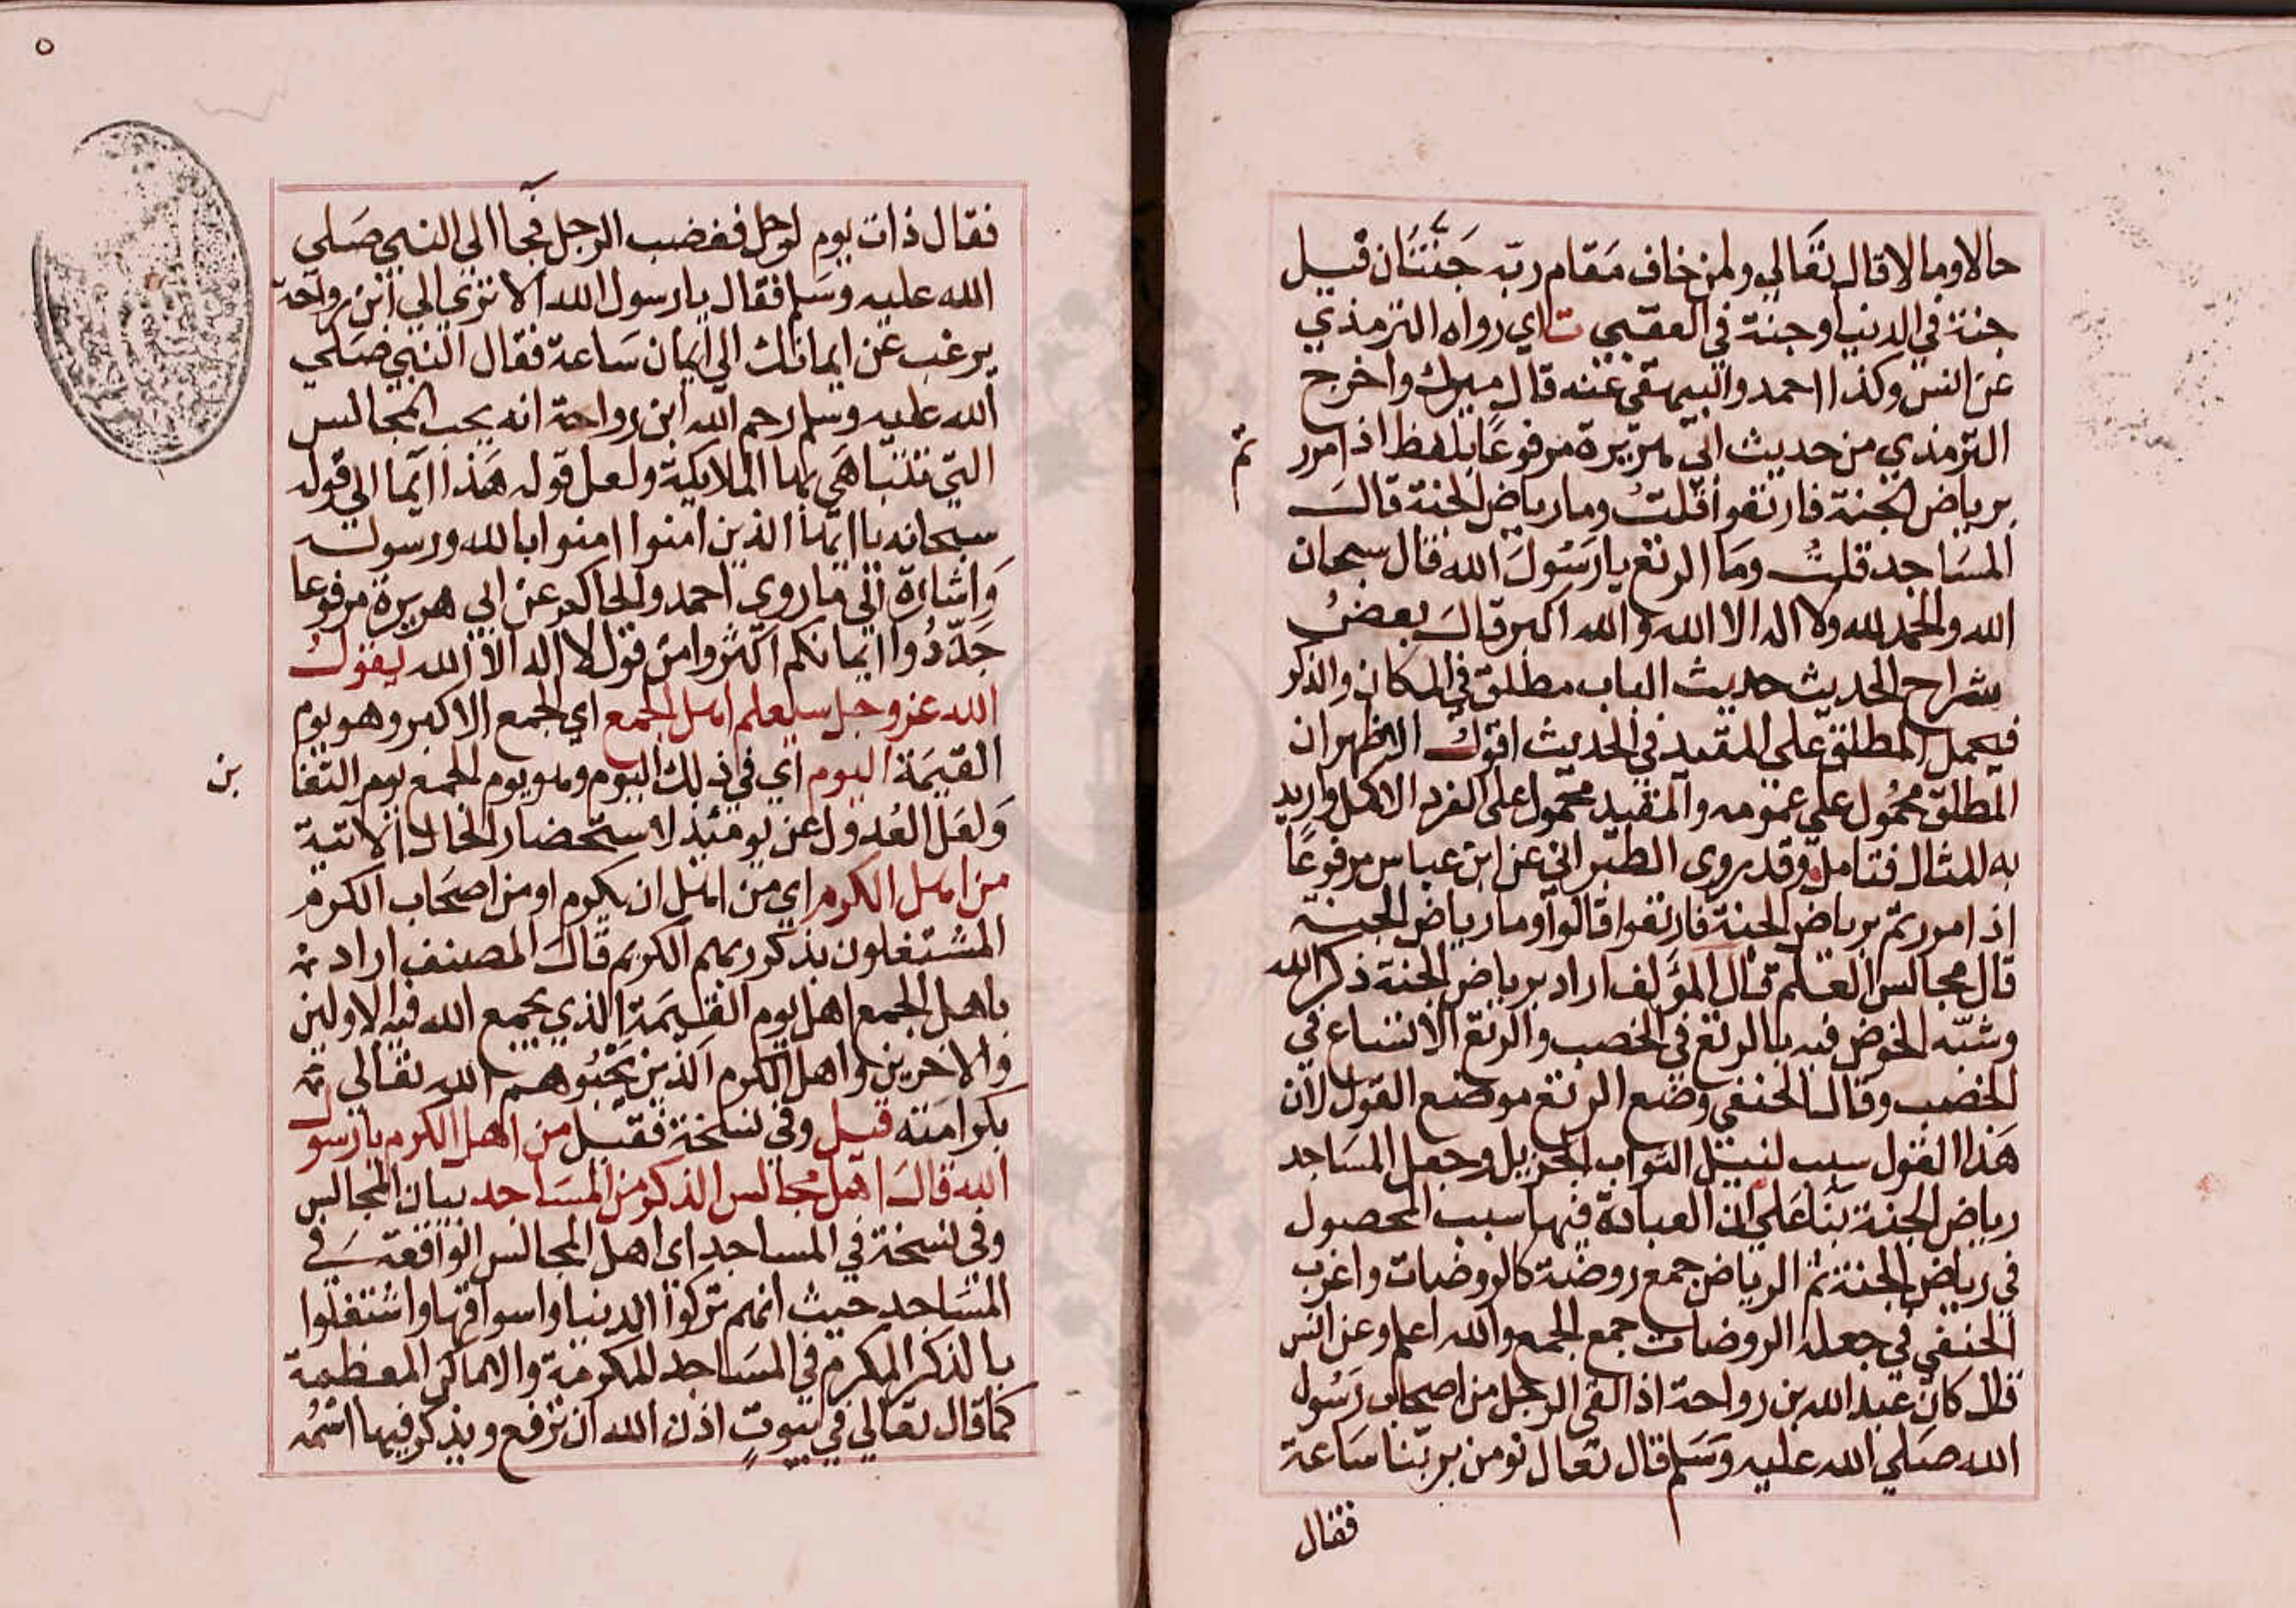 حالا ومالا قال تعالي ولمن خاف مقام ربه جَنَّتَان قيل
جنة في الدنيا وجنة في العقبي ت اي رواه الترمذي
عن انس وكذا احمد والبيهقي عنه قال ميرك واخرج
الترمذي من حديث ابي هريرة مرفوعًا بلفظ اذا مرر
تم
برياض الجنة فارتعوا قلتُ وما رياض الجنة قالَ
المسَاجد قلتُ ومَا الرتع يا رَسُولَ الله قال سبحان
الله والحمد لله ولا اله الا الله والله اكبر قالَ بعضُ
شراح الحديث حديث الباب مطلق في المكان والذكر
فيحمل المطلق علي المقيد في الحديث اقول الاظهر ان
المطلق محمُول علي عمومه والمقيد محمول علي الفرد الاكمل واريد
به المثال فتامل وقد روي الطبراني عن ابن عباس مرفوعًا
اذا مررتم برياض الجنة فارتعوا قالوا وما رياض الجنة
قال مجالس العلم قال المؤلف اراد برياض الجنة ذكر الله
وشبّه الخوض فيه بالرتع في الخصب والرتع الاتساع في
الخصب وقال الحنفي وضع الرتع موضع القول لان
هَذا القول سبب لنيل الثواب الجزيل وجعل المسَاجد
رياض الجنة بنَا عَلي ان العبادة فيها سبب المحصول
في رياض الجنة ثم الرياض جمع روضة كالروضات واغرب
الحنفي في جعله الروضات جمع الجمع والله اعلم وعن انس
قال كان عبد الله بن رواحة اذا لقي الرجل من اصحاب رَسُول
الله صَلي الله عليه وَسَلم قال تعال نومن بربّنا سَاعة
فقال
٥
فقال ذات يوم لرجل فغضب الرجل فجَاا الي النبي صَلي
الله عليه وسَلم فقال يا رسول الله الا تري الي ابن رواحة
يرغب عن ايمانك الي ايمان سَاعة فقال النبي صَلي
الله عليه وسلم رحم الله ابن رواحة انه يحب المجالس
التي تتباهَي بها الملايكة ولعل قوله هَذا ايما الي قوله
سبحانه يا ايها الذين امنوا امنوا بالله ورسوله
وَاشارة الي ما روي احمد والحاكم عن ابي هريرة مرفوعا
جَدّدُوا ايمانكم اكثروا من قول لا اله الا الله يقولُ
الله عز وجل سيعلم اهل الجمع اي الجمع الاكبر وهو يوم
القيمَة اليوم اي في ذلك اليوم وهو يوم الجمع يوم التغا
بن
وَلعَل العُدول عن يومئذ لاستحضار الحال الاتية
من اهل الكرم اي من اهل ان يكرم او من اصحَاب الكرم
المشتغلون بذكر ربهم الكريم قالَ المصنف اراد
باهل الجمع اهل يوم القيمَة الذي يجمع الله فيه الاولين
والاخرين واهل الكرم الذين يَحْبُوهم الله تعالي
بكرامته قيل وفي نسخة فقيل من اهل الكرم يا رسول
الله قالَ اهل مجالس الذكر من المسَاجد بيان المجالس
وفي نسخة في المساجد اي اهل المجالس الواقعة في
المسَاجد حيث انهم تركوا الدنيا واسواقها واشتغلوا
بالذكر المكرم في المسَاجد المكرمة والاماكن المعظمة
كمَا قال تعَالي في بيوتٍ اذن الله ان ترفع ويذكر فيها اسْمُه